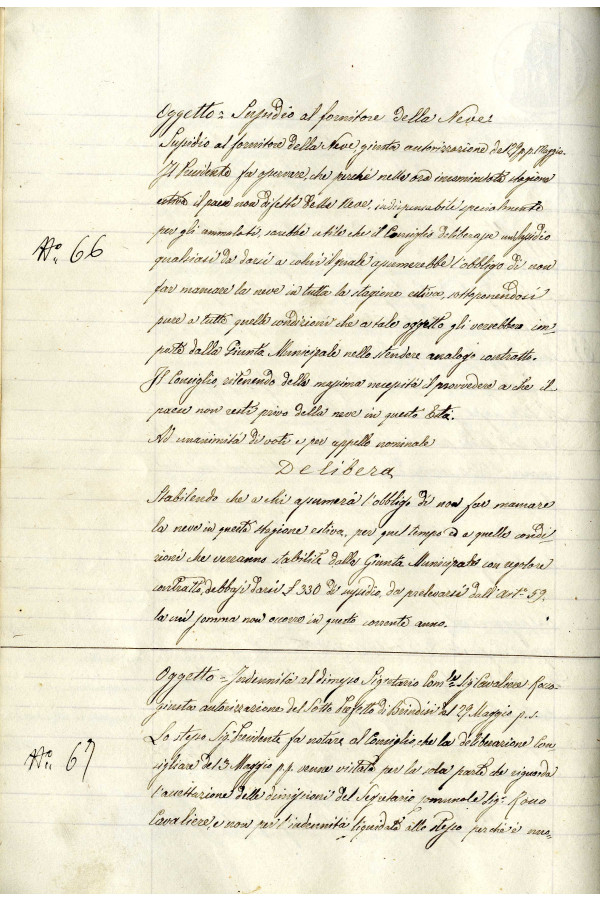 Oggetto = Sussidio al fornitore della Neve =
Sussidio al fornitore della Neve giusta autorizzazione del 29 p.p. Maggio.
Il Presidente fa osservare, che perché nella ora incominciata stagione
estiva il paese non difetti della Neve, indispensabile specialmente
per gli ammalati, sarebbe utile che il Consiglio deliberasse un sussidio
N.o 66
qualsiasi da darsi a colui il quale assumerebbe l'obbligo di non
far mancare la neve in tutta la stagione estiva, sottoponendosi
pure a tutte quelle condizioni che a tale oggetto gli verrebbero im-
poste dalla Giunta Municipale nello stendere analogo contratto.
Il Consiglio, ritenendo della massima necessità il provvedere a che il
paese non resti privo della neve in questa Està.
Ad unanimità di voti e per appello nominale
Delibera
Stabilendo che a chi assumerà l'obbligo di non far mancare
la neve in questa stagione estiva, per quel tempo ed a quelle condi-
zioni che verranno stabilite dalla Giunta Municipale con regolare
contratto, debbasi darsi £ 330 di sussidio, da prelevarsi dall'Art.o 59.
la cui somma non occorre in questo corrente anno.
Oggetto = Indennità al dimesso Segretario Com.le Sig. Cavaliere Roco-
giusta autorizzazione del Sotto Prefetto di Brindisi del 29 Maggio p.s.
Lo stesso Sig. Presidente fa notare al Consiglio, che la deliberazione Con-
N.o 67
sigliare del 3 Maggio p.p. venne vistata per la sola parte che riguarda
l'accettazione delle dimissioni del Segretario comunale Sig. Roco
Cavaliere, e non per l'indennità liquidata allo stesso perché è neces-